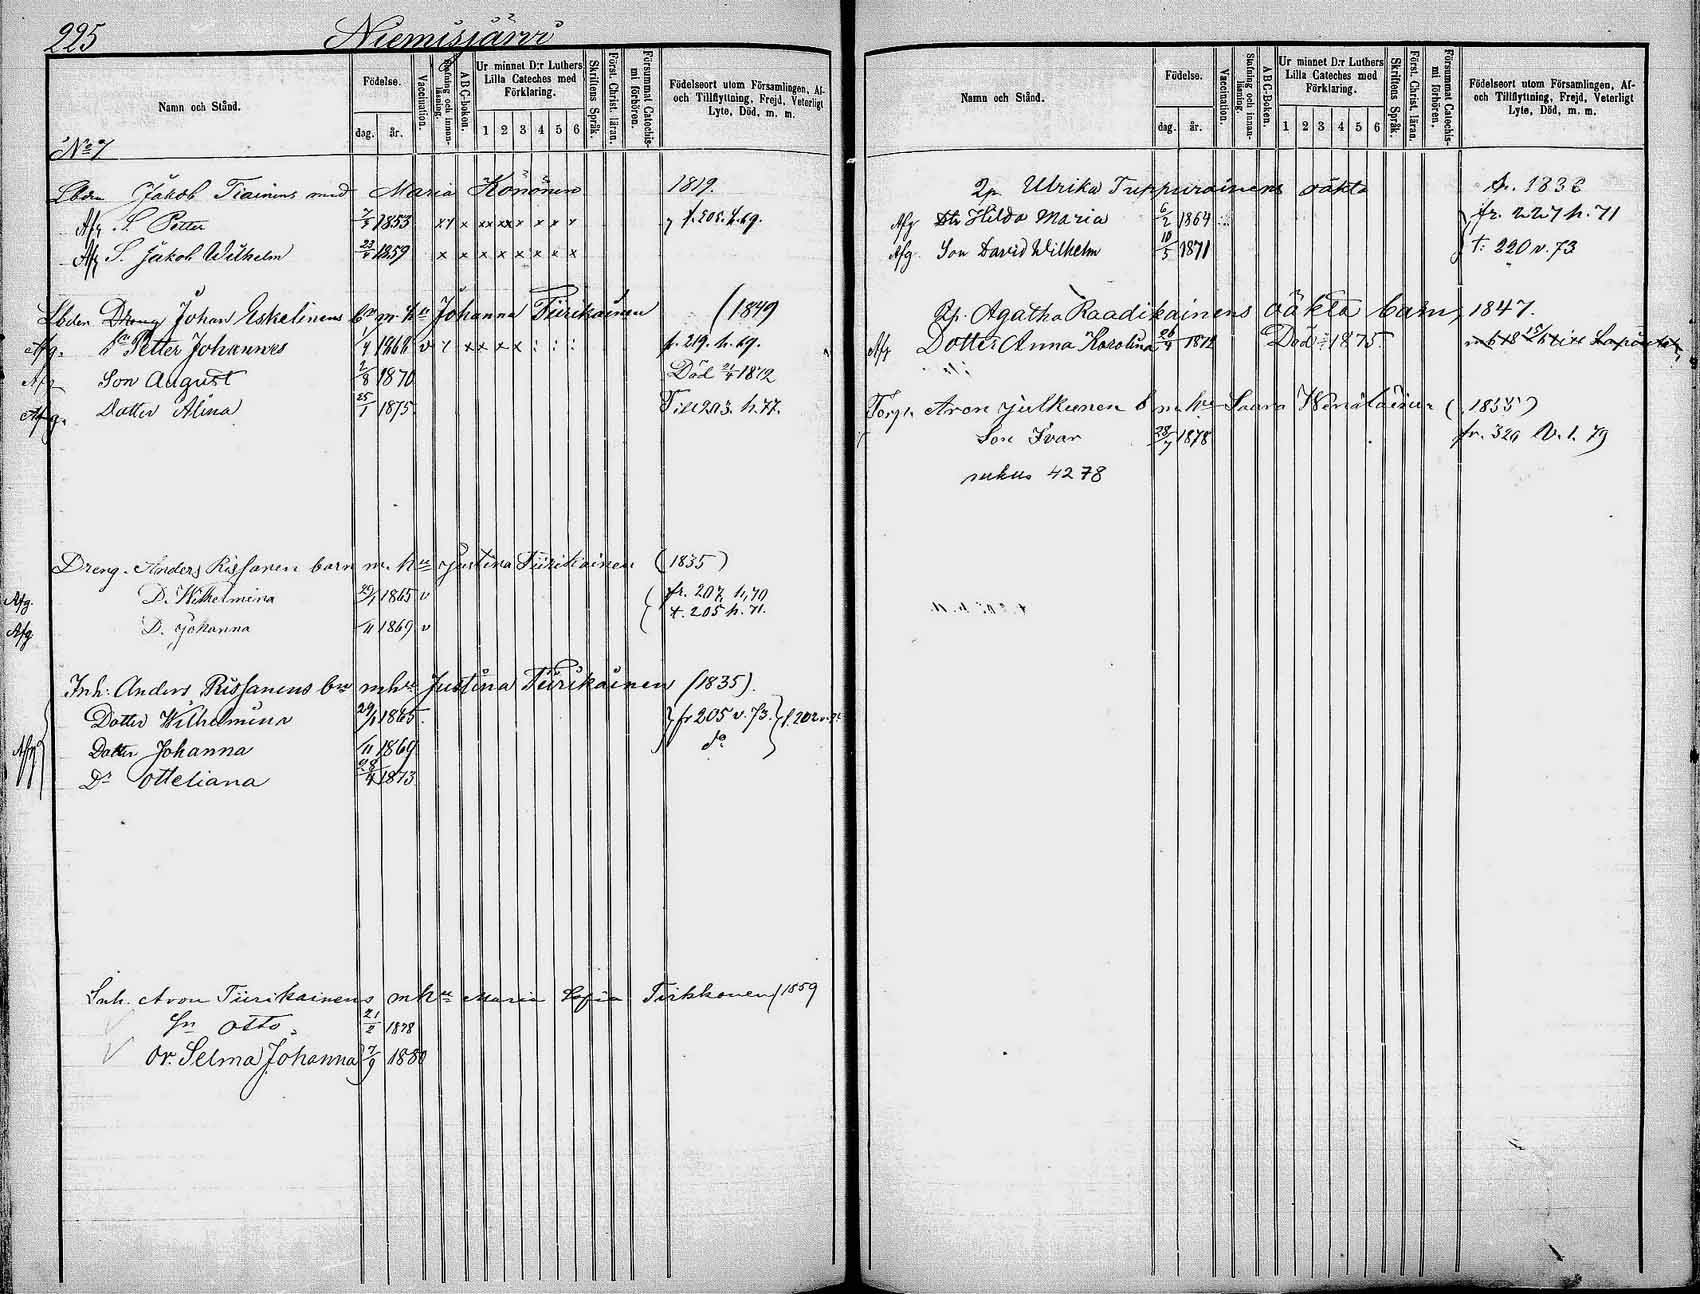 225 Niemisjärvi
Namn och Stånd. Födelse. dag. år. Vaccination. Stafning och innan-läsning. ABC-bokon. Ur minnet D:r Luthers Lilla Cateches med Förklaring. 1 2 3 4 5 6 Skriftens Språk. Först. Christ. läran. Försummat Catechis-mi förhören. Födelseort utom Församlingen, Af- och Tillflyttning, Frejd, Veterligt Lyte, Död, m. m.
No 7
Lbdn Jakob Tiainens med Maria Kononen 1819.
Afg S. Petter 1853 x x x x x x x x x t. 205. h. 69.
Afg S. Jakob Wilhelm 23/4 1859 x x x x x x x x
Lbden Dreng Johan Eskelinens bn m. h. Johanna Tiirikainen (1849
Afg. Sn Petter Johannes 1/4 1868 v x x x x x : : : f. 219. h. 69.
Afg Son August 2/8 1870 Död 21/4 1872
Afg. Dotter Alina 25/1 1875. Till 203. h. 77.
Dreng. Anders Rissanen barn m. hu Justina Tiirikainen (1835)
Afg. D. Wilhelmina 29/1 1865 v fr. 207, h, 70
t. 205 h. 71.
Afg D. Johanna 1/11 1869 v
Inh: Anders Rissanens bn m hu Justina Tiirikainen (1835).
Dotter Wilhelmina 29/1 1865. fr 205 v. 73.
Afg Dotter Johanna 1/11 1869 do
Dr Otteliana 28/4 1873
Inh. Aron Tiirikainens m hu Maria Sofia Tirkkonen (1859
Sn Otto 21/2 1878
Dr. Selma Johanna 7/9 1880
Namn och Stånd. Födelse. dag. år. Vaccination. Stafning och innan-läsning. ABC-Bokon. Ur minnet D:r Luthers Lilla Cateches med Förklaring. 1 2 3 4 5 6 Skriftens Språk. Först. Christ. läran. Försummat Catechis-mi förhören. Födelseort utom Församlingen, Af- och Tillflyttning, Frejd, Veterligt Lyte, Död, m. m.
Qp Ulrika Tuppurainens oäkta
Afg Dtr Hilda Maria 6/2 1864 fr. 227 h. 71
Afg. Son David Wilhelm 10/5 1871 t. 220 v. 73
Qp. Agatha Raadikainens oäkta barn, 1847.
Afg Dotter Anna Karolina 26/4 1872 Död 1875
Torp. Aron Julkunen b m. hu Saara Wenäläinen (1835)
Son Ivar 28/7 1878 fr. 320
4278